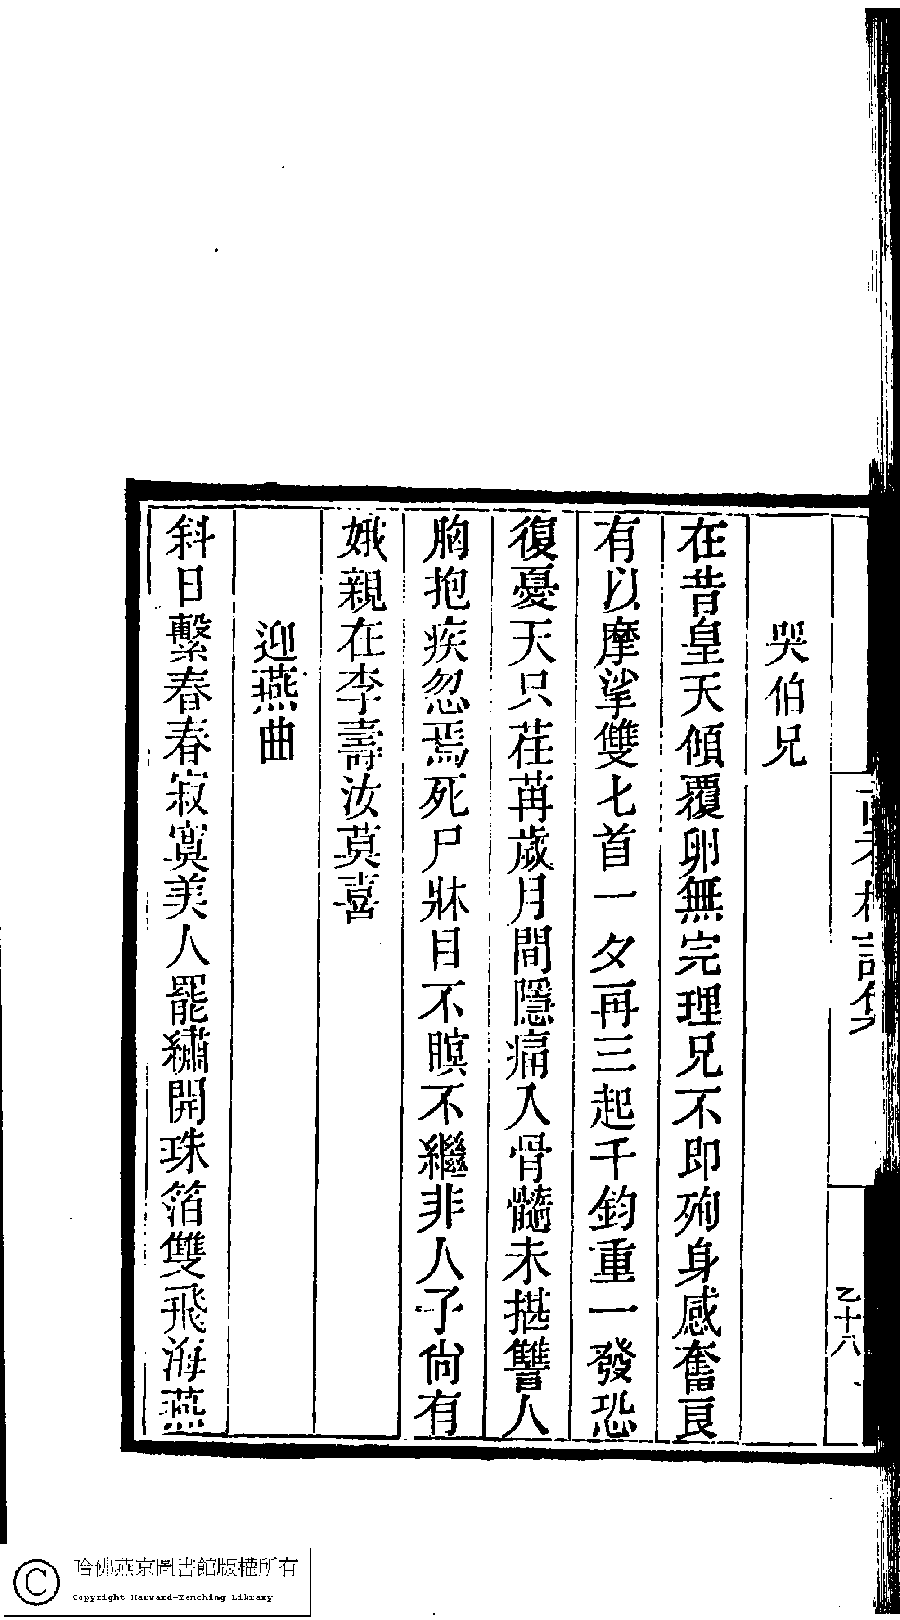 哭伯兄
在昔皇天傾覆卵無完理兄不即殉身感奮良
有以摩挲雙匕首一夕再三起千鈞重一發恐
復憂天只荏苒歲月間隱痛入骨髓未揕讐人
胸抱疾忽焉死尸牀目不瞑不繼非人子尙有
娥親在李壽汝莫喜
迎燕曲
斜日繫春春寂寞美人罷繡開珠箔雙飛海燕
詩集
乙十八
哈佛燕京圖書館版權所有
Copyright Harvard-Yenching Library